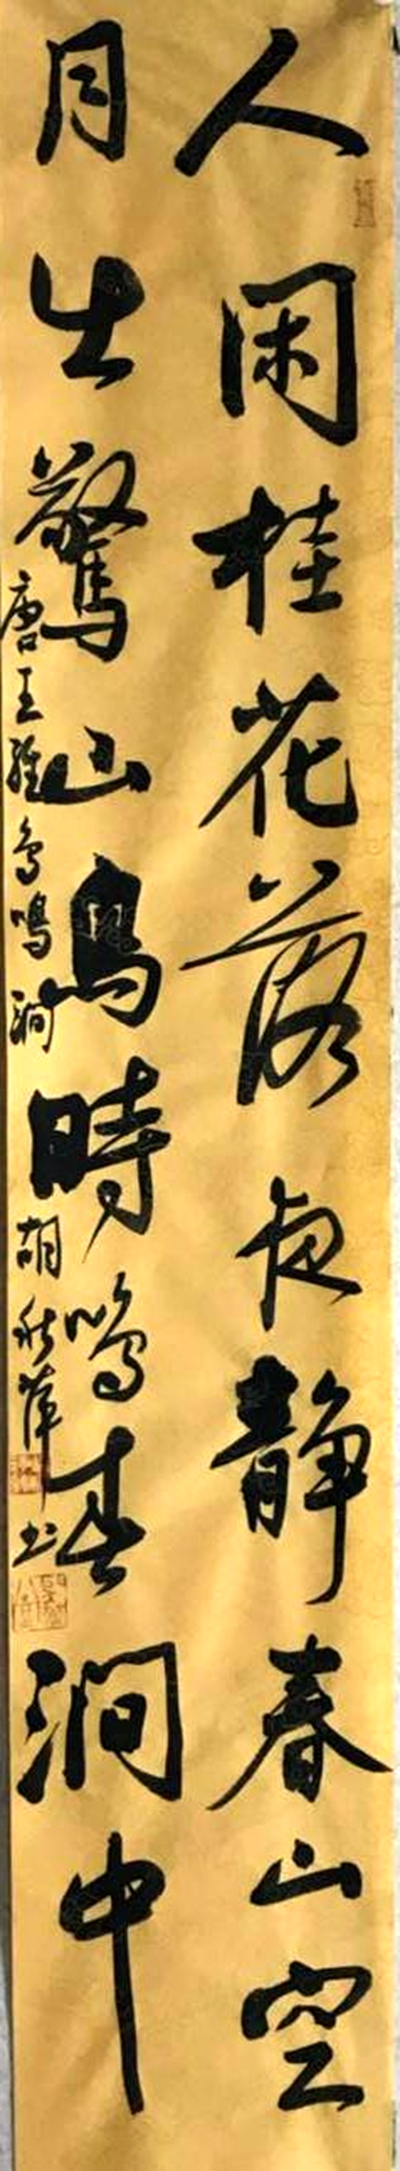 人闲桂花落夜静春山空
月出驚山鳥時鳴春澗中
唐王維鳥鳴澗 胡秋萍书